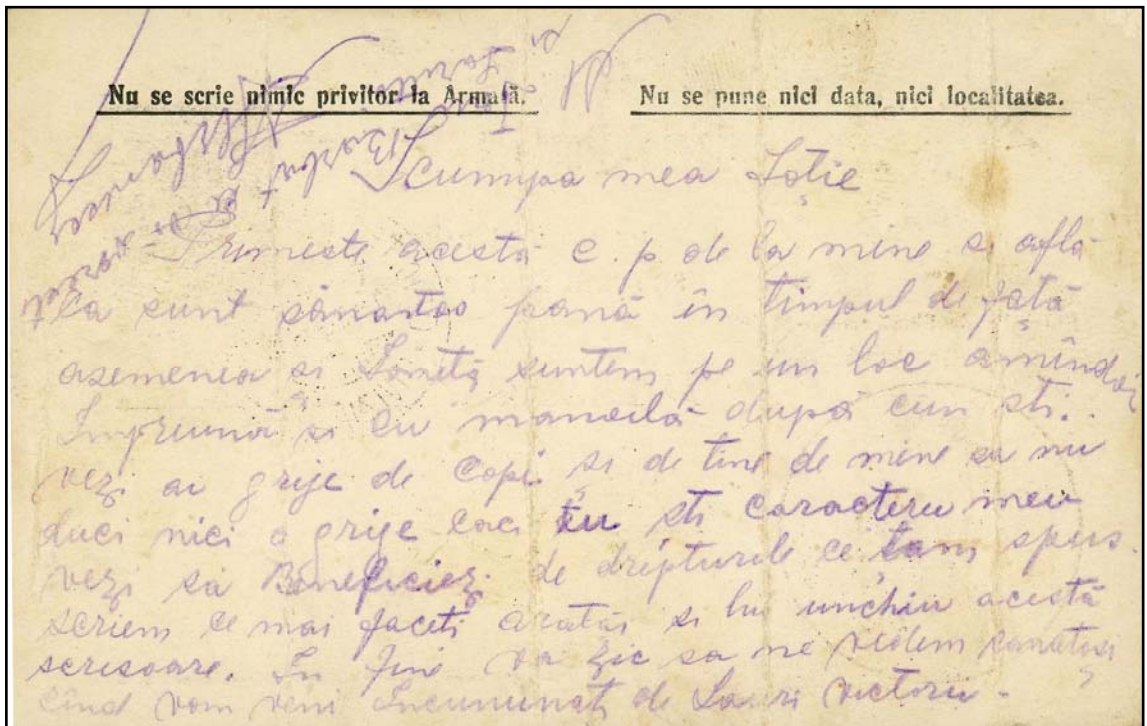 Nu se scrie nimic privitor la Armată. Nu se pune nici data, nici localitatea.
Scumpa mea Soție
Primeste acestă c. p. de la mine si află
ca sunt sănartos pană în timpul de față
asemenea si suntem pe un loc amîndoi
Împreună si cu manoilă după cum sti.
vezi ai grije de Copii si de tine de mine sa nu
duci nici o grije caci tu sti caracteru meu
vezi sa Beneficiezi de drepturile ce tam spus.
scriem ce mai faceti aratăi si lui unchiu acestă
scrisoare. In fine va zic sa ne vedem sanatosi
cînd vom veni Încununați de Lauri victorii -